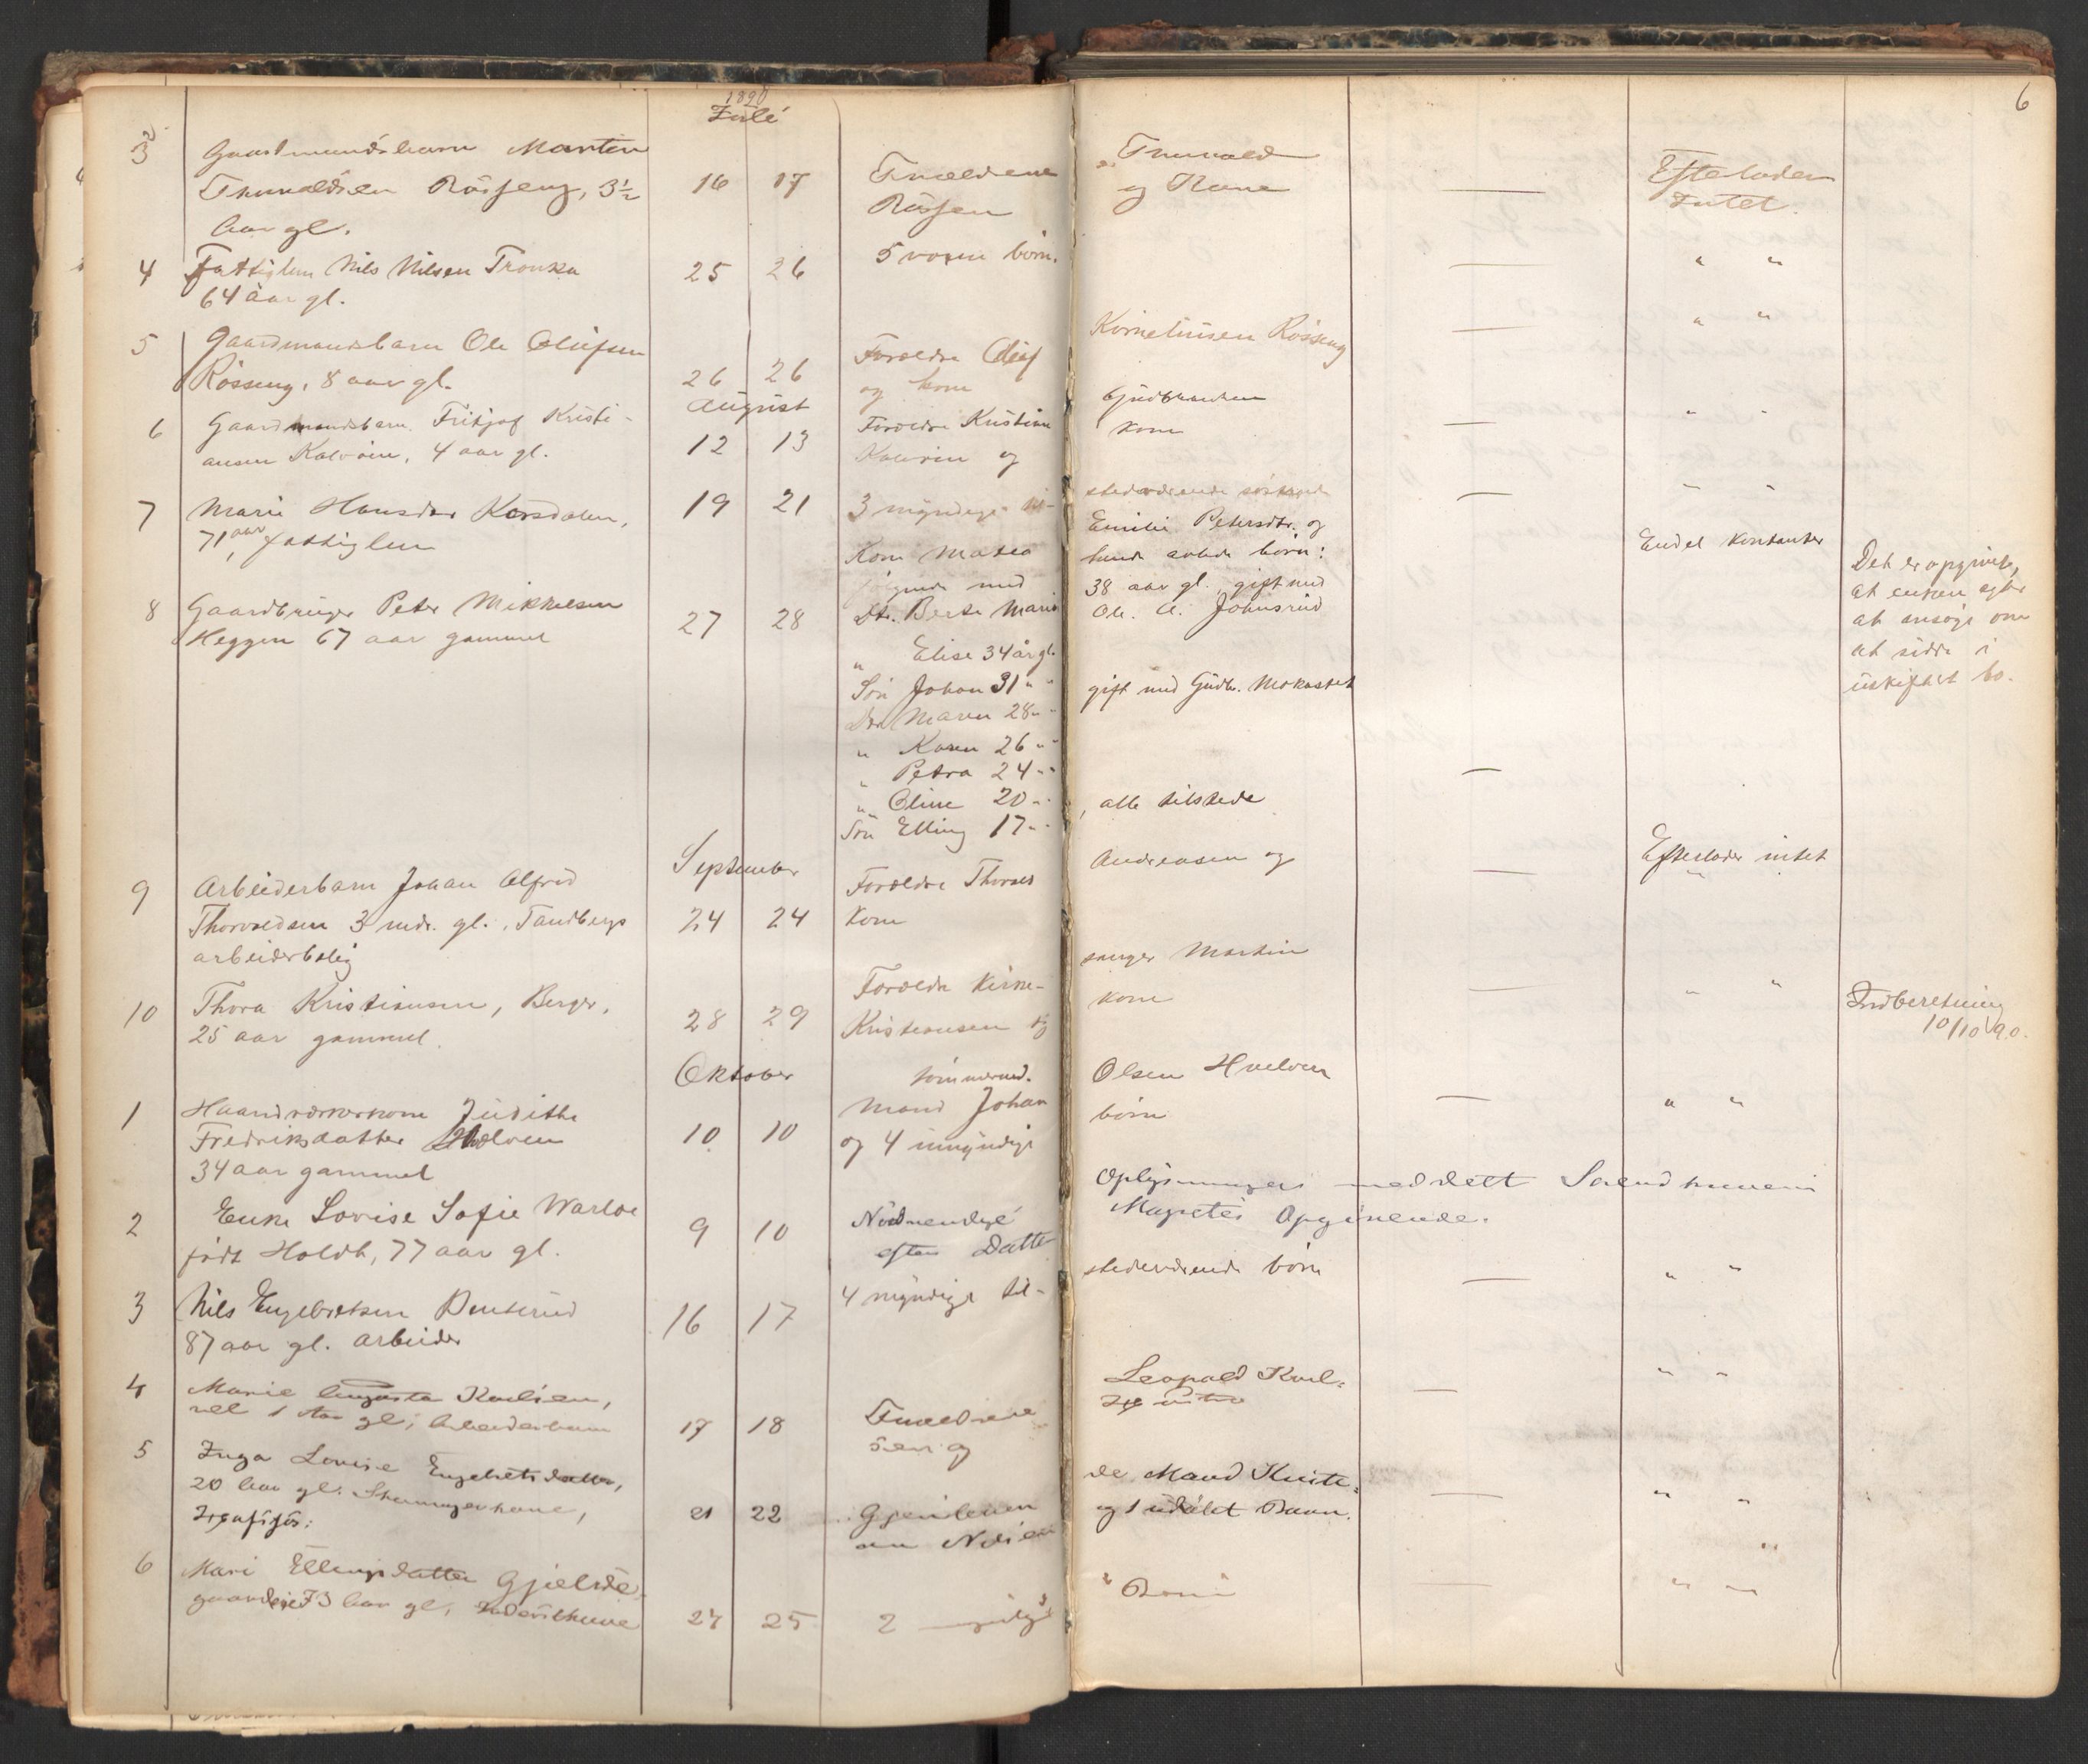 1890
Juli
6
3 Gaardmandsbarn Martin
Thorvaldsen Røsseng, 3½
Aar gl.
16 17
Forældrene Thorvald
Røssen og Kone
—
Efterlader
Intet.
4 Fattiglem Nils Nilsen Tronka
64 aar gl.
25 26
5 voxne børn.
—
" "
5 Gaardmandsbarn Ole Olufsen
Røsseng, 8 aar gl.
26 26
Forældre Oluf Korneliusen Røsseng
og kone
—
" "
August
6 Gaardmandsbarn Fritjof Kristi-
ansen Kalvøien, 4 aar gl.
12 13
Forældre Kristian Gudbrandsen
Kalvøien og kone
—
" "
7 Marie Hansdtr Korsdalen,
71 aar, fattiglem
19 21
3 myndige til-
stedeværende søskende
—
" "
8 Gaardbruger Peter Mikkelsen
Heggen 67 aar gammel
27 28
Kone Matea Emilie Petersdtr. og
følgende med hende avlede børn:
Dtr. Berte Marie 38 aar gl. gift med
Ole. A. Johnsrud
" Elise 34 år gl.
gift med Gudbr. Mokastet
Søn Johan 31 " "
Dtr Maren 28 " "
" Karen 26 " "
" Petra 24 " "
" Oline 20 " "
Søn Elling 17 " "
, alle tilstede
—
Endel kontanter
Det er opgivet,
at enken agter
at ansøge om
at sidde i
uskiftet bo.
September
9 Arbeiderbarn Johan Alfred
Thorvaldsen 3 mdr. gl., Tandbergs
arbeiderbolig
24 24
Forældre Thorvald Andreasen og
kone
—
Efterlader intet
10 Thora Kristiansen, Berger,
25 aar gammel.
28 29
Forældre Kirke-
sanger Martin
Kristiansen og kone
—
" "
Indberetning
10/10 90.
Oktober
1 Haandværkerkone Judithe
Fredriksdatter Hvelven
34 aar gammel
10 10
tømmermd.
Mand Johan Olsen Hvelven
og 4 umyndige børn
—
" "
2 Enke Lovise Sofie Warloe
født Holdt, 77 aar gl.
9 10
Nødvendige Oplysninger meddelt
efter Datter Magretes Opgivende.
3 Nils Engebretsen Benterud
87 aar gl. arbeider
16 17
4 myndige til-
stedeværende børn
—
" "
4 Marie Augusta Karlsen,
vel 1 Aar gl; Arbeiderbarn
17 18
Forældrene Leopold Karl-
sen og
—
" "
5 Inga Lovise Engebretsdatter,
20 Aar gl.
21 22
Gjenlevende Mand Kriste-
og 1 udøbt Barn.
—
" "
6 Mari Ellingsdatter Gjelsde-
gaardeie 73 Aar gl,
24 25
2 myndige Børn
—
" "